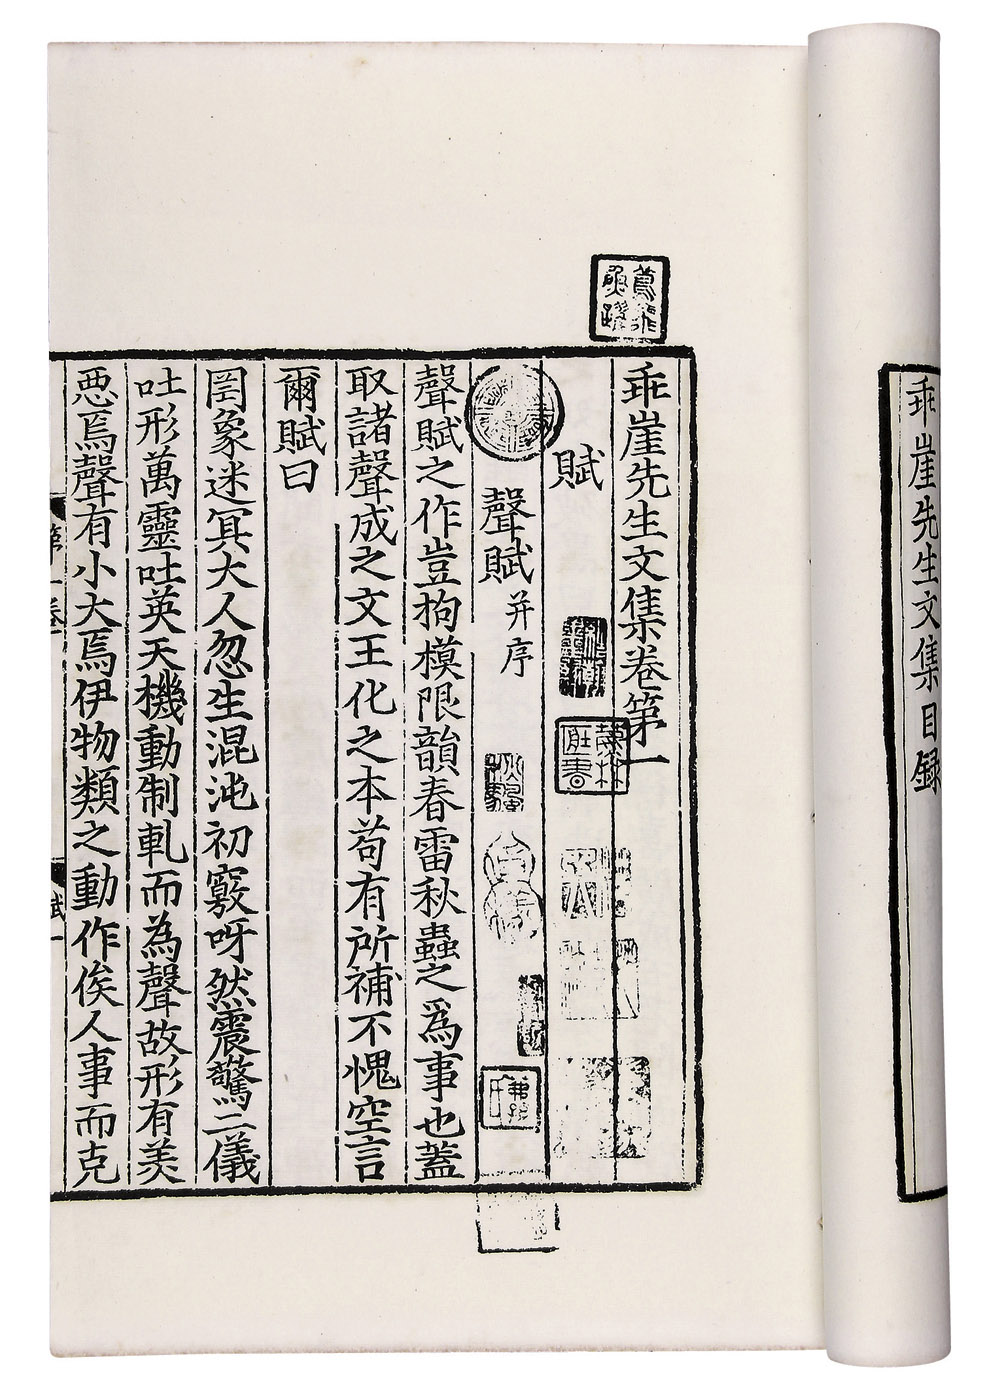 乖崖先生文集目録
乖崖先生文集卷第一
賦
聲賦并序
聲賦之作豈拘模限韻春雷秋蟲之爲事也蓋
取諸聲成之文王化之本苟有所補不愧空言
爾賦曰
罔象迷冥大人忽生混沌初竅呀然震驚二儀
吐形萬靈吐英天機動制軋而為聲故形有羙
惡焉聲有小大焉伊物類之動作俟人事而克
第一卷
賦一